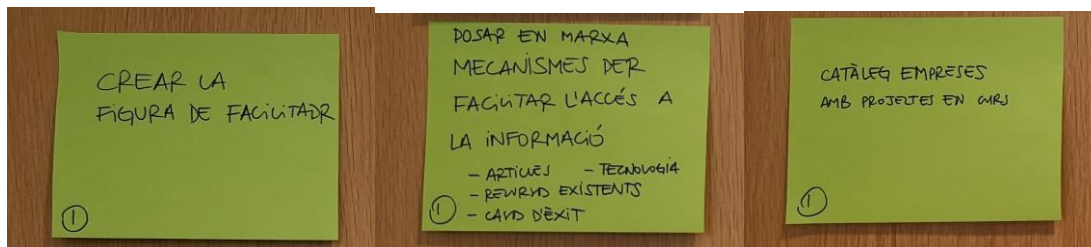 CREAR LA
FIGURA DE FACILITADOR
①
POSAR EN MARXA
MECANISMES PER
FACILITAR L'ACCÉS A
LA INFORMACIÓ
- ARTICLES - TECNOLOGIA
- RECURSOS EXISTENTS
① - CASOS D'ÈXIT
CATÀLEG EMPRESES
AMB PROJECTES EN CURS
①